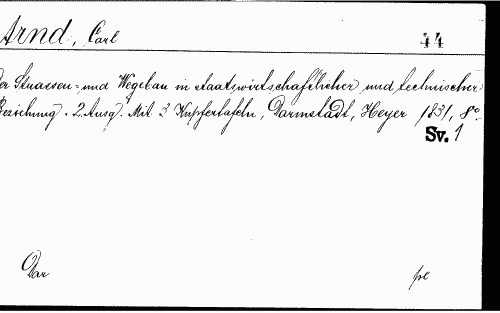 Arnd, Carl 44
der Strassen- und Wegebau in staatswirtschaftlicher und technischer
Beziehung. 2. Ausg. Mit 3 Kupfertafeln, Darmstadt, Heyer 1831, 8°
Sv. 1
Dar